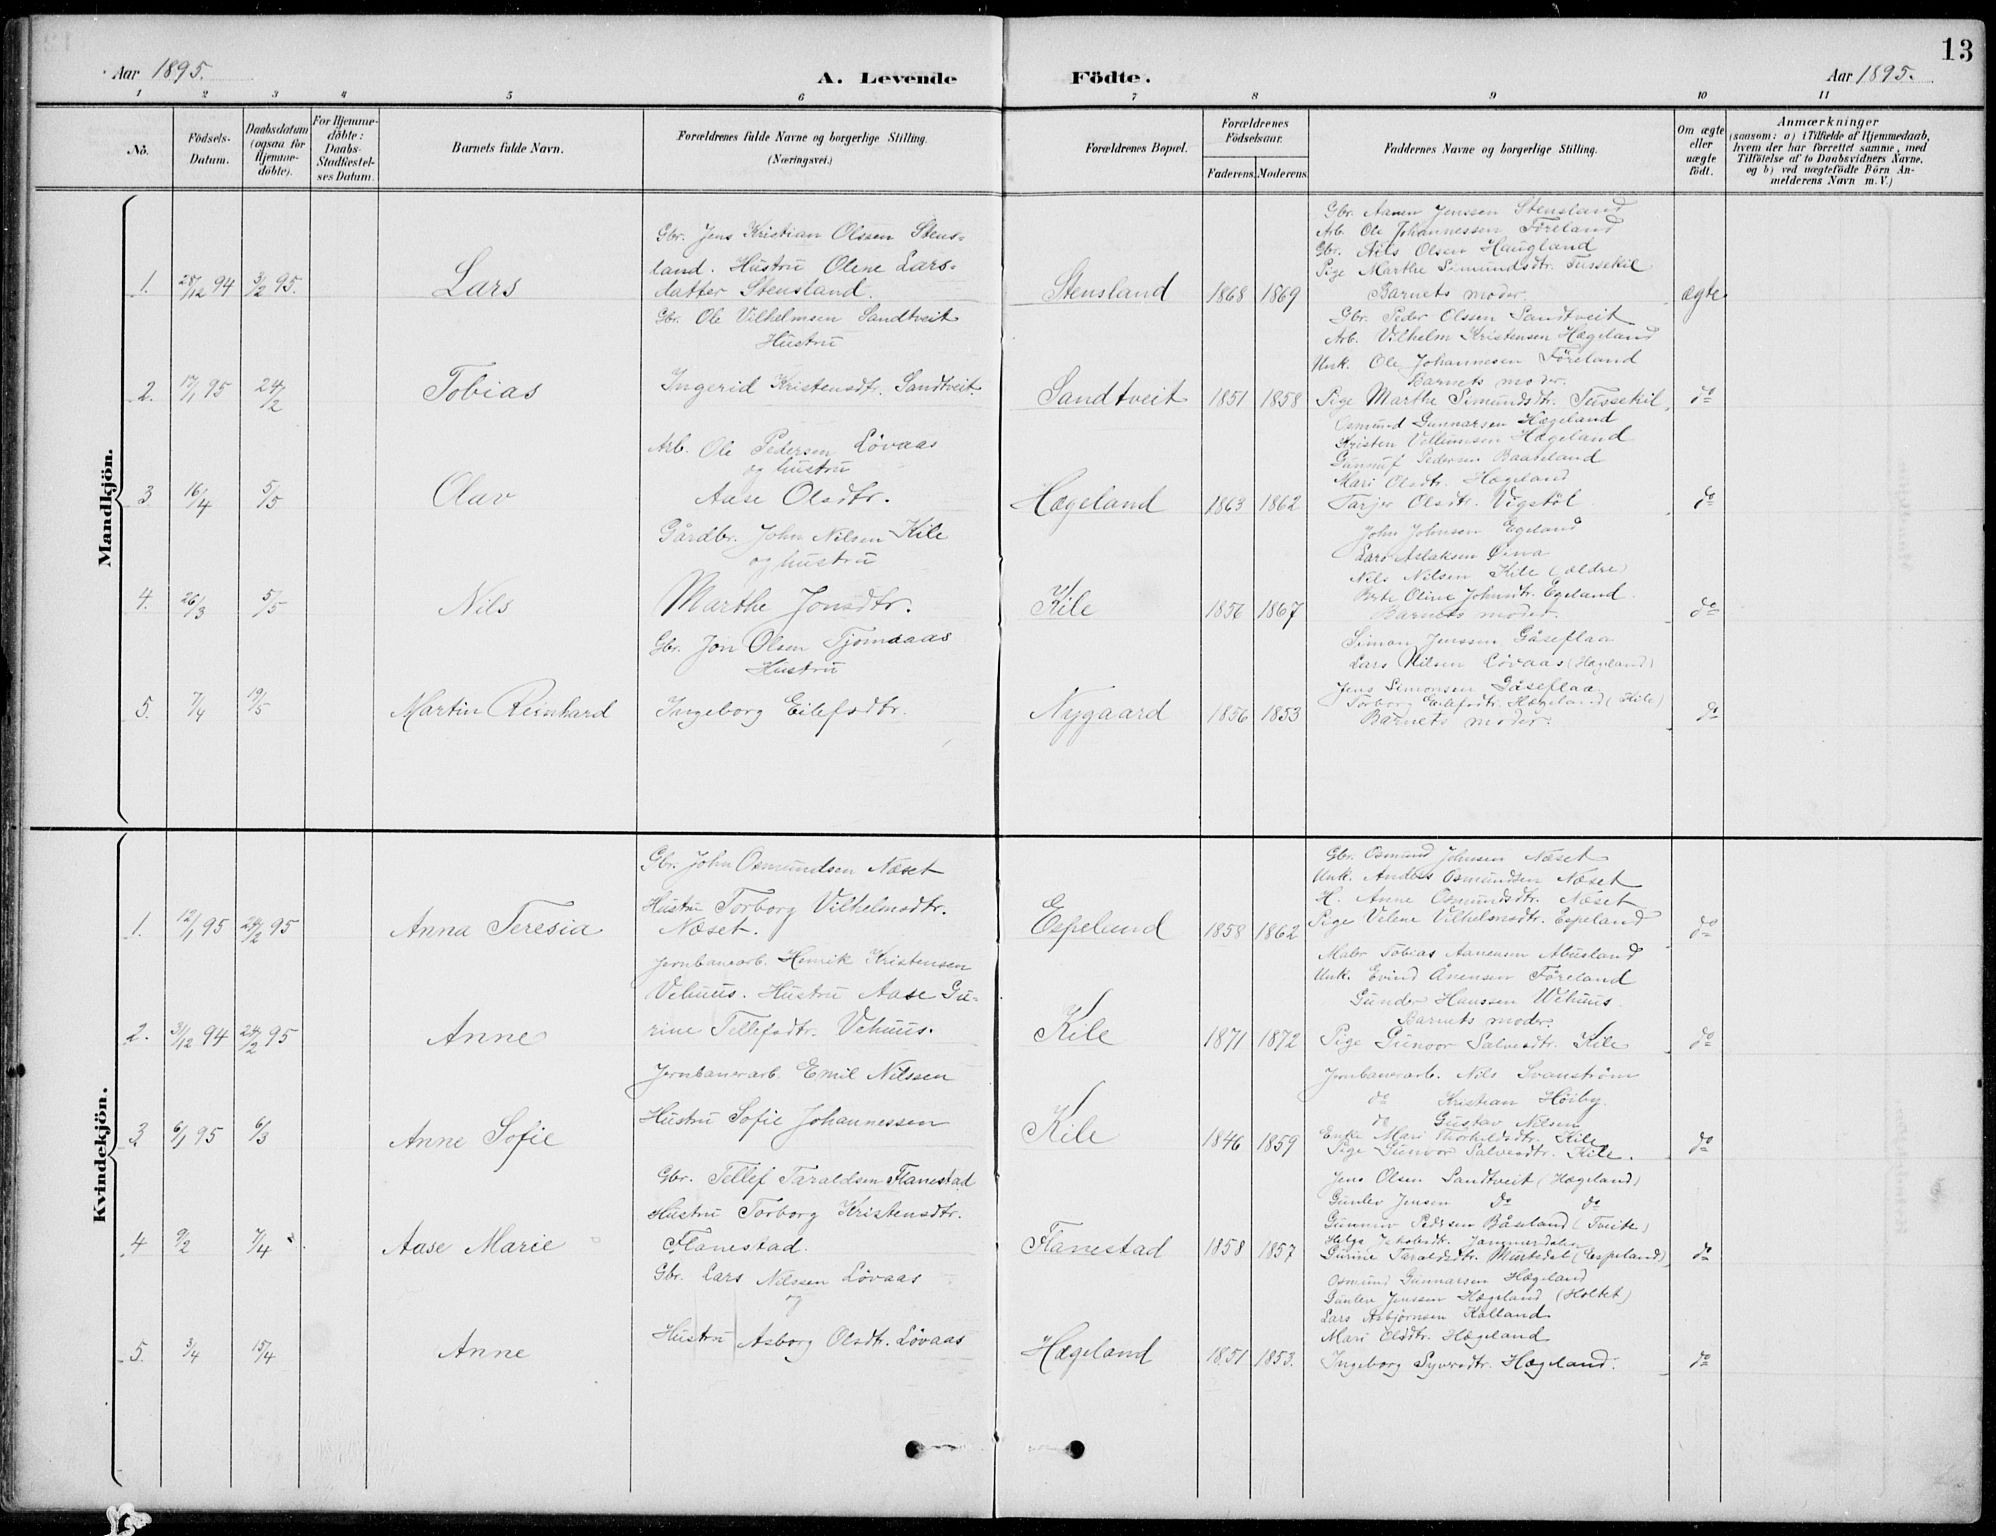 13
Aar 1895.
A. Levende Födte.
Aar 1895.
1 2 3 4 5 6 7 8 9 10 11
No.
Födsels-Datum.
Daabsdatum (ogsaa for Hjemme-döbte).
For Hjemme-döbte: Daabs-Stadfæstel-ses Datum.
Barnets fulde Navn.
Forældrenes fulde Navne og borgerlige Stilling.
(Næringsvei.)
Forældrenes Bopæl.
Forældrenes Födselsaar.
Faderens. Moderens.
Faddernes Navne og borgerlige Stilling.
Om ægte eller uægte födt.
Anmærkninger
(saasom: a) i Tilfælde af Hjemmedaab,
hvem der har forrettet samme, med
Tilföielse af to Daabsvidners Navne,
og b) ved uægtefödte Börn An-
melderens Navn m. V.)
Mandkjön.
1. 28/12 94 3/2 95. Lars
Gbr. Jens Kristian Olssen Stens-
land. Hustru Olene Lars-
datter Stensland.
Stensland 1868 1869
Gbr. Aanen Jenssen Stensland
Arb. Ole Johannessen Föreland
Gbr. Nils Olsen Haugland
Pige Marthe Simundsdtr. Tussekil
Barnets moder.
ægte
2. 17/1 95 24/2 Tobias
Gbr. Ole Vilhelmsen Sandtveit
Hustru
Ingerid Kristensdtr. Sandtveit.
Sandtveit 1851 1858
Gbr. Peder Olssen Sandtveit
Arb. Vilhelm Kristensen Hægeland
Unk. Ole Johannesen Föreland
Barnets moder.
Pige Marthe Simundsdtr. Tussekil
do
3 16/4 5/5 Olav
Arb. Ole Pedersen Løvaas
og hustru
Aase Olsdtr.
Hægeland 1863 1862
Osmund Gunnarsen Hægeland
Kristen Vellumsen Hægeland
Gunnuf Pedersen Baaseland
Mari Olsdtr. Hægeland
Tarjer Olsdtr. Vigstöl
do
4. 26/3 5/5 Nils
Gårdbr. John Nilsen Kile
og hustru
Marthe Jonsdtr.
Kile 1856 1867
John Johnsen Egeland
Lars Aslaksen Øina
Nils Nilsen Kile (ældre)
Berte Oline Johnsdtr. Egeland.
Barnets moder.
do
5. 7/4 19/5 Martin Reinhard
Gbr. Jon Olsen Tjomsaas
Hustru
Ingeborg Eilefsdtr.
Nygaard 1856 1853
Simon Jenssen Gåseflaa
Lars Nilsen Løvaas (Hægeland)
Jens Simonsen Gåseflaa
Torborg Eilefsdtr. Hægeland (Kile)
Barnets moder.
do
Kvindekjön.
1. 12/1 95 24/2 95 Anna Teresia
Gbr. John Osmundsen Næset
Hustru Torborg Vilhelmsdtr.
Næset.
Espelund 1858 1862
Gbr. Osmund Johnsen Næset
Unk. Anders Osmundsen Næset
H. Anne Osmundsdtr. Næset
Pige Velene Vilhelmsdtr. Espeland
do
2. 3/12 94 24/2 95 Anne
Jernbanearb. Henrik Kristensen
Vehuus. Hustru Aase Gu-
rine Tellefsdtr. Vehuus.
Kile 1871 1872
Maler Tobias Aanensen Abusland
Unk. Evind Ånensen Föreland
Gunder Hanssen Wehuus.
Barnets moder.
Pige Gunvor Salvesdtr. Kile
do
3. 6/1 95 6/3 Anne Sofie
Jernbanearb. Emil Nilssen
Hustru Sofie Johannessen
Kile 1846 1859
Jernbanearb. Nils Svanström
do Kristian Höiby.
do Gustav Nilsen
Enke Mari Thorkildsdtr. Kile
Pige Gunvor Salvesdtr. Kile.
do
4 9/2 7/4 Aase Marie
Gbr. Tellef Taraldsen Flanestad
Hustru Torborg Kristensdtr.
Flanestad.
Flanestad 1858 1857
Jens Olsen Sandtveit (Hægeland)
Gunlev Jensen do do
Gunnuv Pedersen Båseland (Tveite)
Helga Jakobsdtr. Jammerdalen
Gurine Taraldsdtr. Murtedal (Espeland)
do
5. 3/4 15/4 Anne
Gbr. Lars Nilssen Løvaas
og
Hustru Asborg Olsdtr. Løvaas
Hægeland 1851 1853.
Osmund Gunnarsen Hægeland
Gunlev Jenssen Hægeland (Holtet)
Lars Asbjørnsen Kalland
Mari Olsdtr. Hægeland
Ingeborg Syversdtr. Hægeland.
do